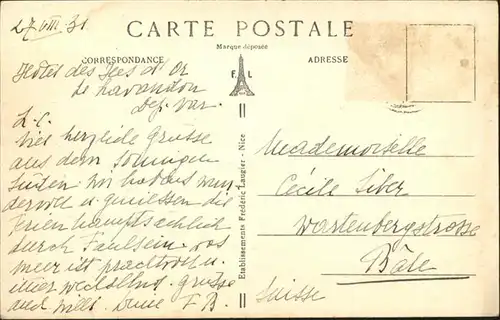 27 VIII 31
CARTE POSTALE
Marque déposée
CORRESPONDANCE
F. L
ADRESSE
Hotel des Iles d'Or
Le Lavandou
Dep. Var.
L. C.
Viel herzliche Grüsse
aus dem sonnigen
Süden. Wir haben es wun
dervoll u. geniessen die
Ferien hauptsächlich
durch Faulsein. Das
Meer ist prachtvoll u.
immer wechselnd. Grüsse
and Willi.
Mademoiselle
Cécile Siber
Wartenbergstrasse
Bâle
Suisse
Etablissements Frédéric Laugier - Nice